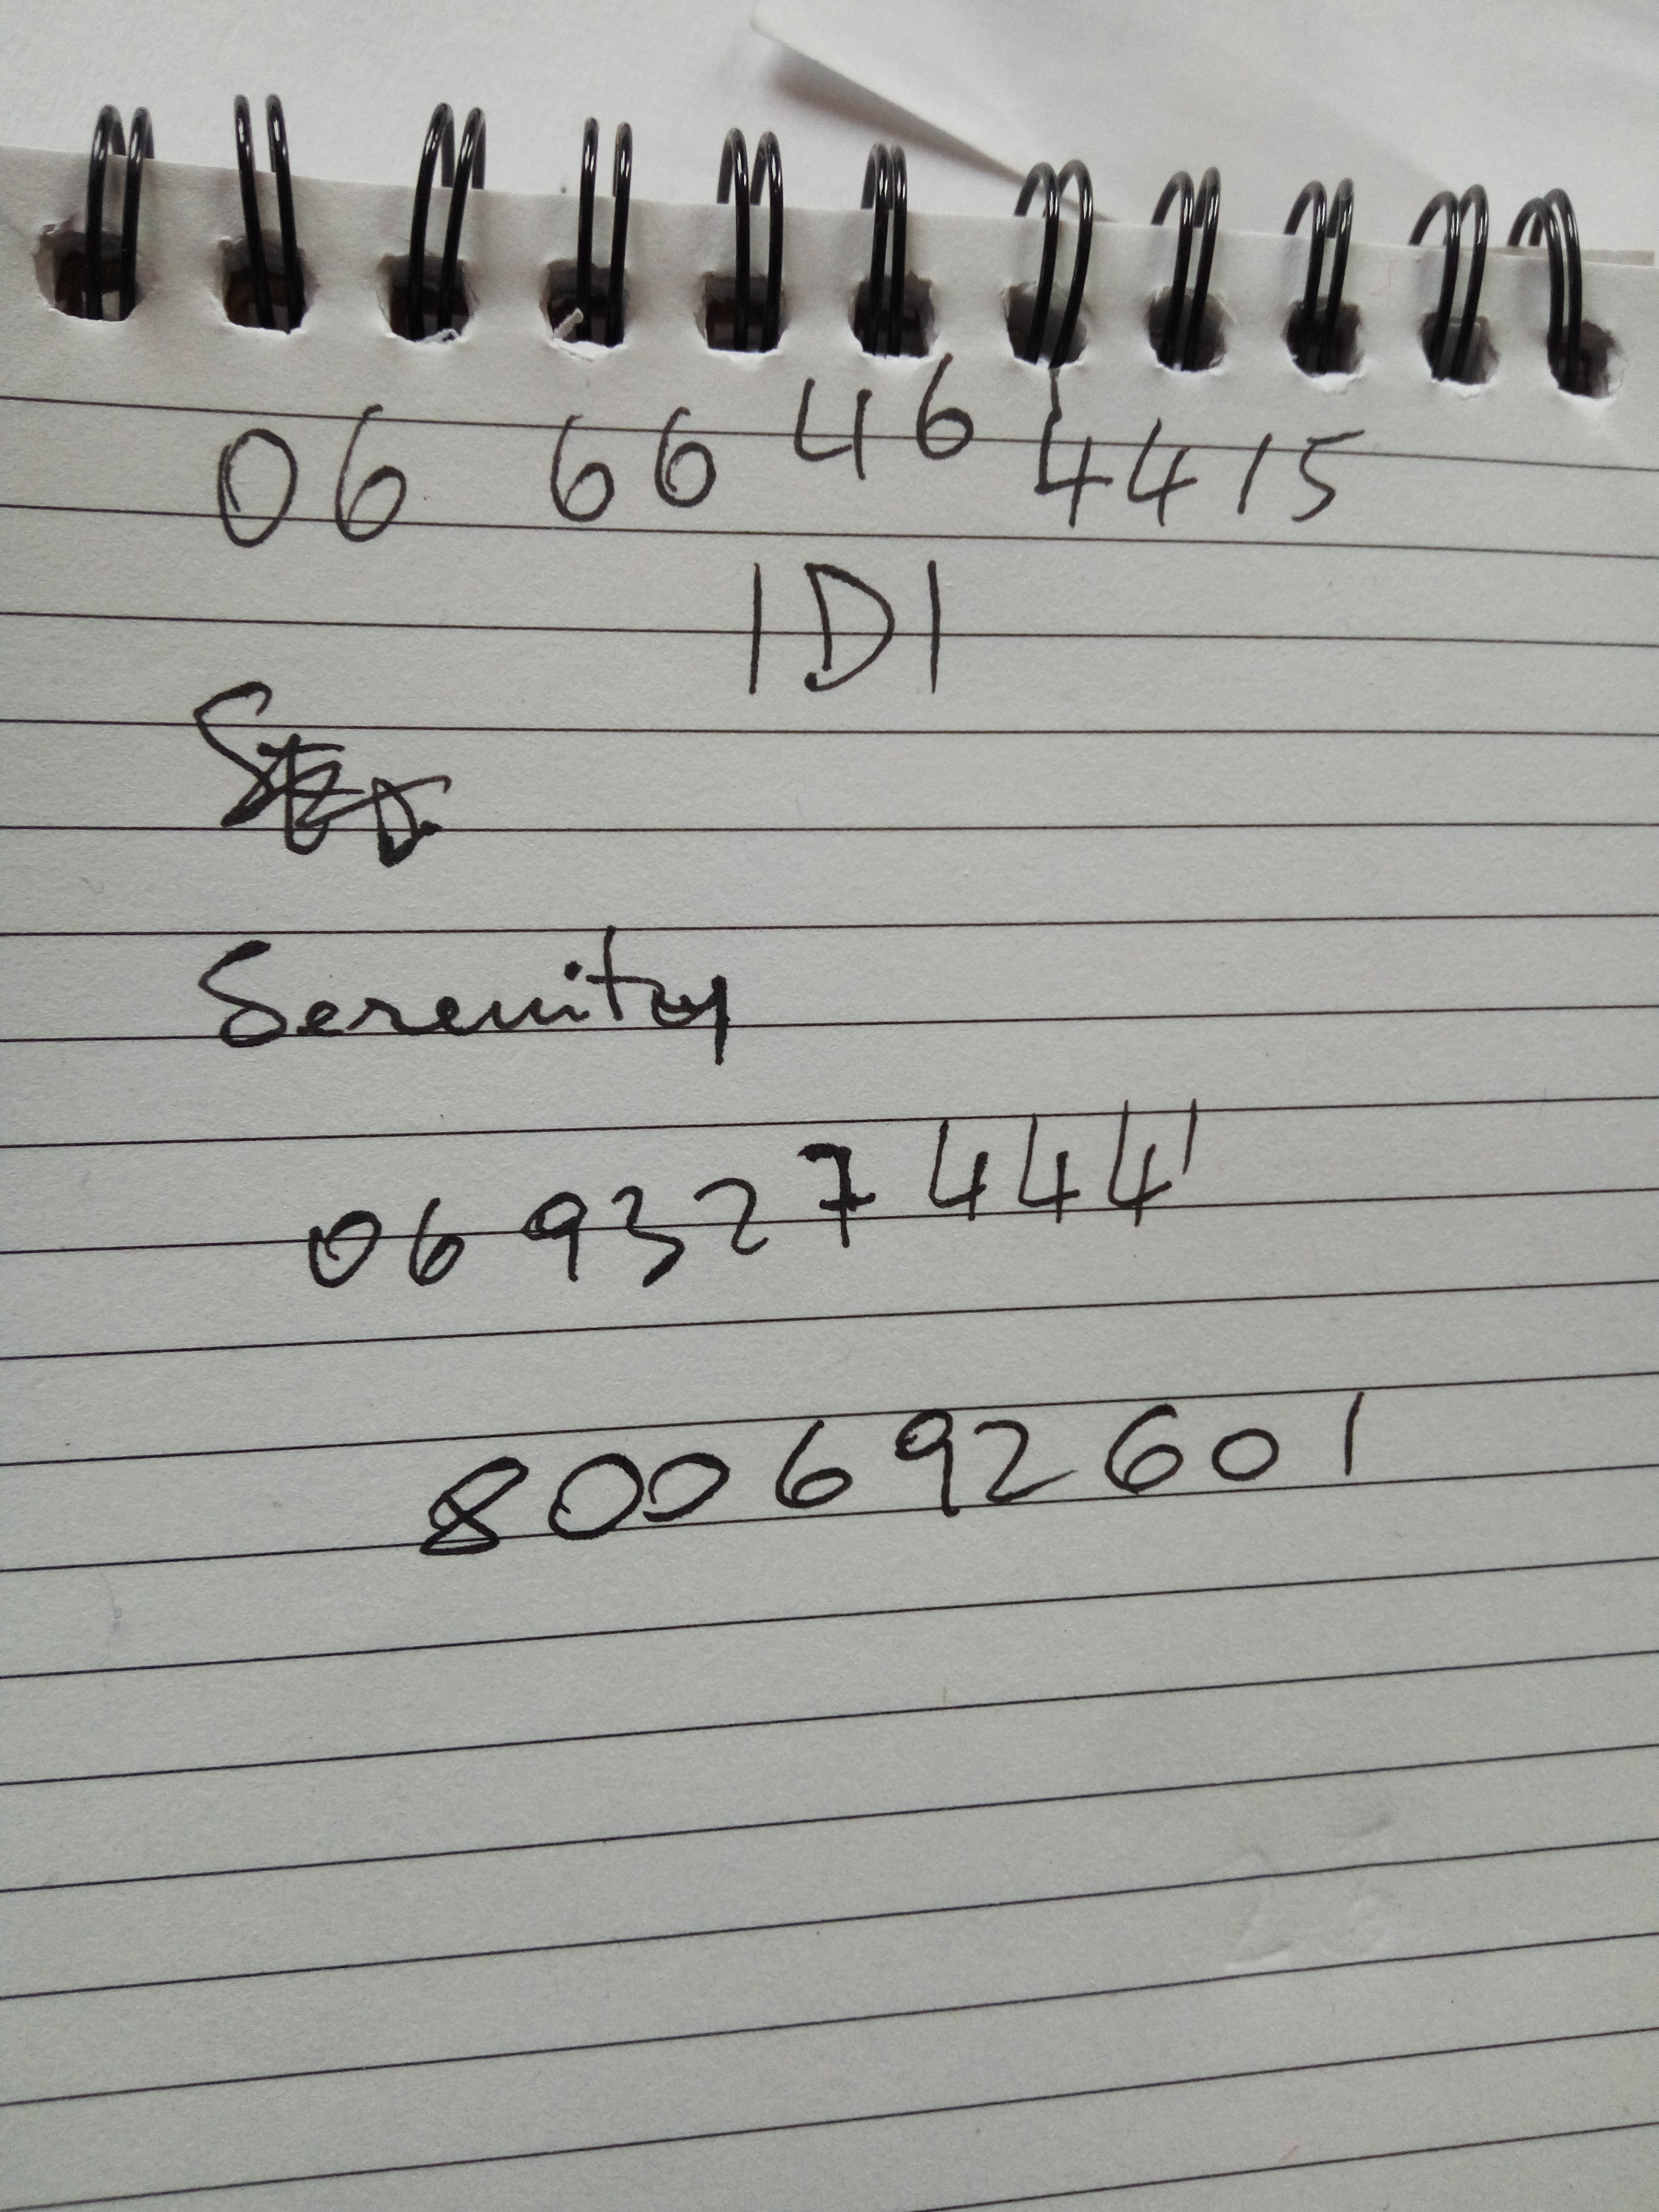 06 66 46 4415
IDI
Serenity
06 9327 4441
800692601